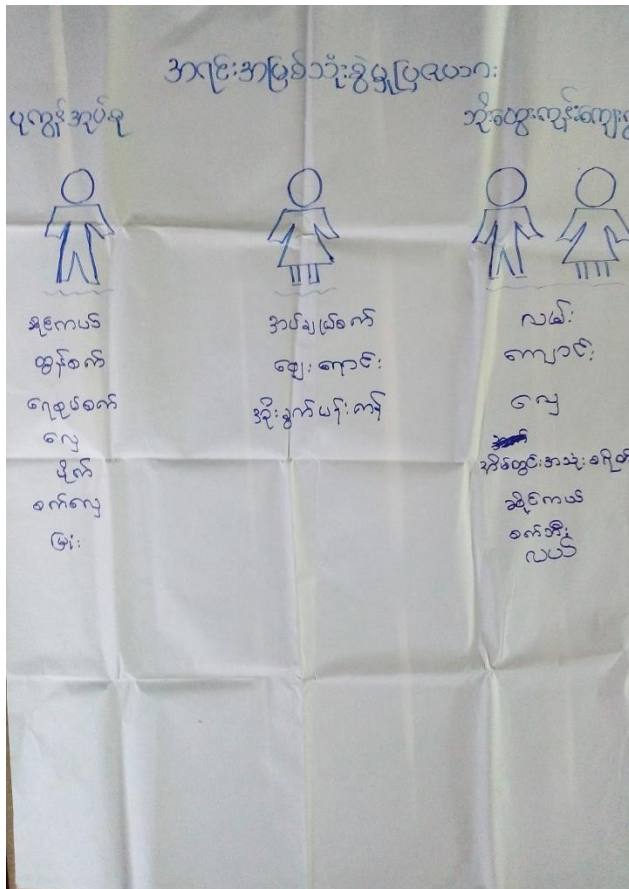 အရင်းအမြစ်သုံးစွဲမှုပြဇယား
ပုကွန်အုပ်စု
ဘိုးထွေးကုန်းကျေးရွာ
ဆိုင်ကယ်
ထွန်စက်
ရေစုပ်စက်
လှေ
ပိုက်
စက်လှေ
မြုံး
အပ်ချုပ်စက်
ဈေးရောင်း
အိုးခွက်ပန်းကန်
လမ်း
ကျောင်း
လှေ
အိမ်တွင်းအသုံးစရိတ်
ဆိုင်ကယ်
စက်ဘီး
လယ်